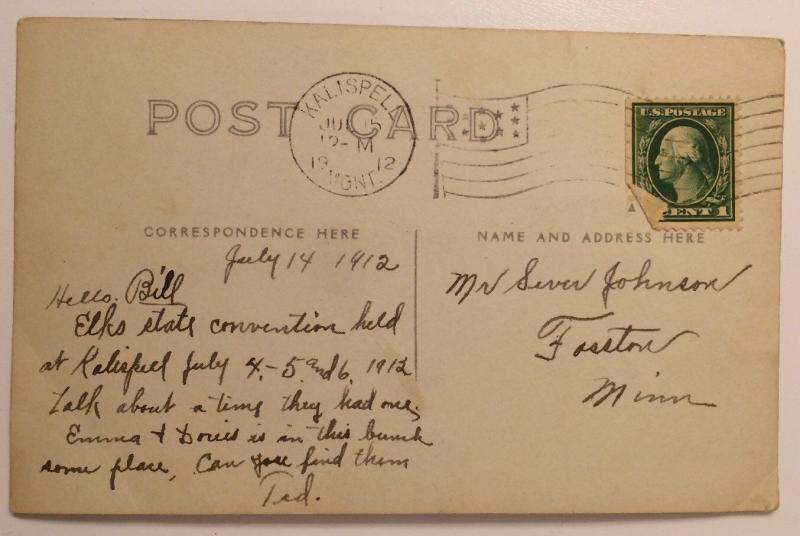 POST CARD
KALISPELL
JUL 15
12-M
1912
MONT.
U.S. POSTAGE
CENT 1
CORRESPONDENCE HERE
NAME AND ADDRESS HERE
July 14 1912
Hello. Bill
Elks state convention held
at Kalispell July 4,-5 and 6, 1912
talk about a time they had one,
Emma & Dories is in this bunch
some place, Can you find them
Ted.
Mr Sever Johnson
Fosston
Minn